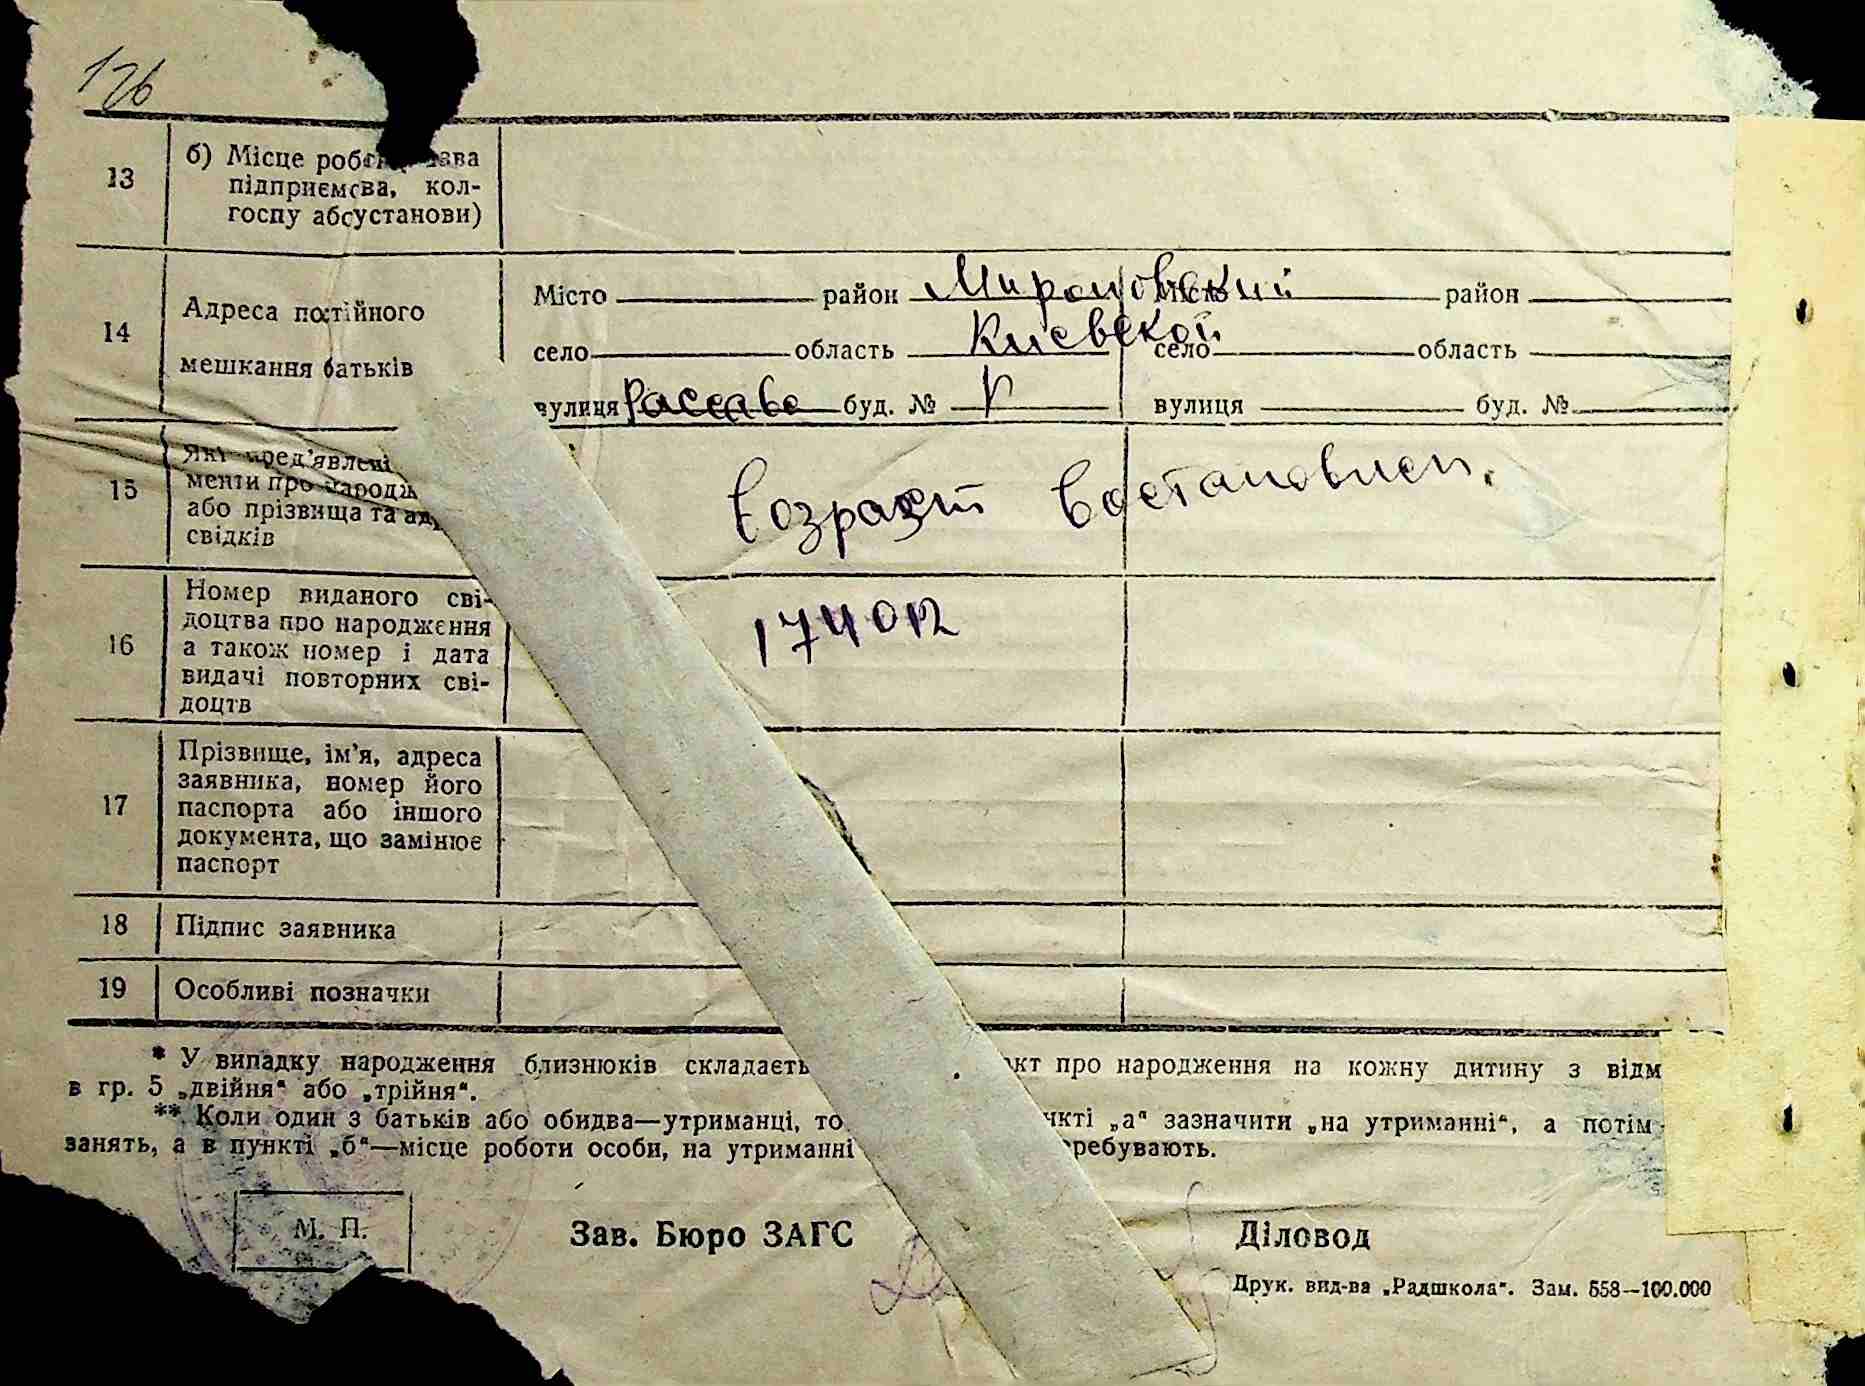 126
13
б) Місце роб зва
підприємсва, кол-
госпу або установи)
14
Адреса постійного
мешкання батьків
Місто район Мироновский місто район
село область Киевской село область
вулиця Россаве буд. № вулиця буд. №
15
Які пред'явлені
менти про народж
або прізвища та ад
свідків
возраст востановлен.
16
Номер виданого сві-
доцтва про народження
а також номер і дата
видачі повторних сві-
доцтв
174012
17
Прізвище, ім'я, адреса
заявника, номер його
паспорта або іншого
документа, що замінює
паспорт
18 Підпис заявника
19 Особливі позначки
* У випадку народження близнюків складаєть акт про народження на кожну дитину з відм
в гр. 5 „двійня“ або „трійня“.
** Коли один з батьків або обидва—утриманці, то нкті „а“ зазначити „на утриманні“, а потім
занять, а в пункті „б“—місце роботи особи, на утриманні ребувають.
М. П.
Зав. Бюро ЗАГС
Діловод
Друк. вид-ва „Радшкола“. Зам. 558—100.000